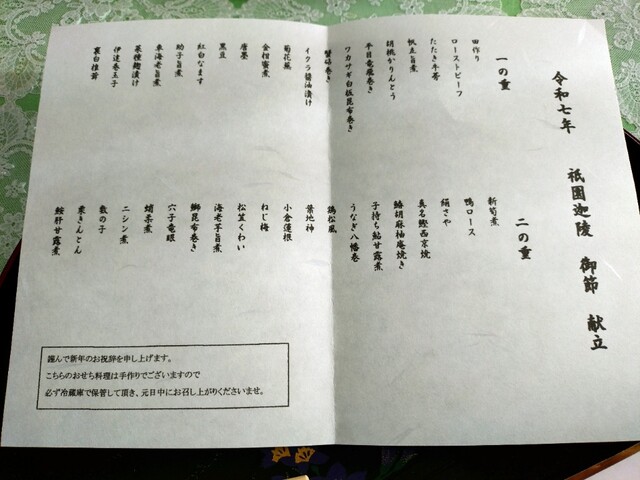 令和七年　祇園迦陵　御節　献立
一の重
田作り
ローストビーフ
たたき牛蒡
帆立旨煮
胡桃かりんとう
平目竜飛巻き
ワカサギ白板昆布巻き
蟹砧巻き
イクラ醤油漬け
菊花蕪
金柑蜜煮
唐墨
黒豆
紅白なます
助子旨煮
車海老旨煮
菜種麹漬け
伊達巻玉子
裏白椎茸
二の重
新筍煮
鴨ロース
絹さや
真名鰹西京焼
鰆胡麻柚庵焼き
子持ち鮎甘露煮
うなぎ八幡巻
鶏松風
黄地神
小倉蓮根
ねじ梅
松笠くわい
海老芋旨煮
鰤昆布巻き
穴子竜眼
蛸柔煮
ニシン煮
数の子
栗きんとん
鮟肝甘露煮
謹んで新年のお祝辞を申し上げます。
こちらのおせち料理は手作りでございますので
必ず冷蔵庫で保管して頂き、元日中にお召し上がりくださいませ。